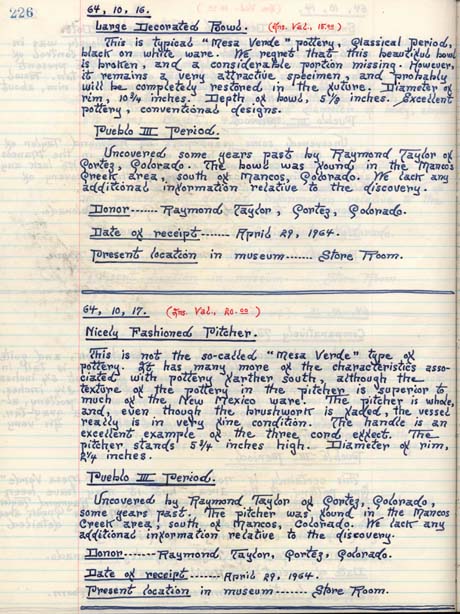 226
64, 10, 16. (Ins. Val., 15.00)
Large Decorated Bowl.
This is typical "Mesa Verde" pottery, Classical Period,
black on white ware. We regret that this beautiful bowl
is broken, and a considerable portion missing. However,
it remains a very attractive specimen, and probably
will be completely restored in the future. Diameter of
rim, 10¾ inches. Depth of bowl, inches. Excellent
pottery, conventional designs.
Pueblo III Period.
Uncovered some years past by Raymond Taylor of
Cortez, Colorado. The bowl was found in the Mancos
Creek area, south of Mancos, Colorado. We lack any
additional information relative to the discovery.
Donor------- Raymond Taylor, Cortez, Colorado.
Date of receipt------- April 29, 1964.
Present location in museum------- Store Room.
64, 10, 17. (Ins. Val., 20.00)
Nicely Fashioned Pitcher.
This is not the so-called "Mesa Verde" type of
pottery. It has many more of the characteristics asso-
ciated with pottery farther south, although the
texture of the pottery in the pitcher is superior to
much of the New Mexico ware. The pitcher is whole,
and, even though the brushwork is faded, the vessel
really is in very fine condition. The handle is an
excellent example of the three cord effect. The
pitcher stands 5¾ inches high. Diameter of rim,
2¼ inches.
Pueblo III Period.
Uncovered by Raymond Taylor of Cortez, Colorado,
some years past. The pitcher was found in the Mancos
Creek area, south of Mancos, Colorado. We lack any
additional information relative to the discovery.
Donor-------Raymond Taylor, Cortez, Colorado.
Date of receipt-------April 29, 1964.
Present location in museum------- Store Room.